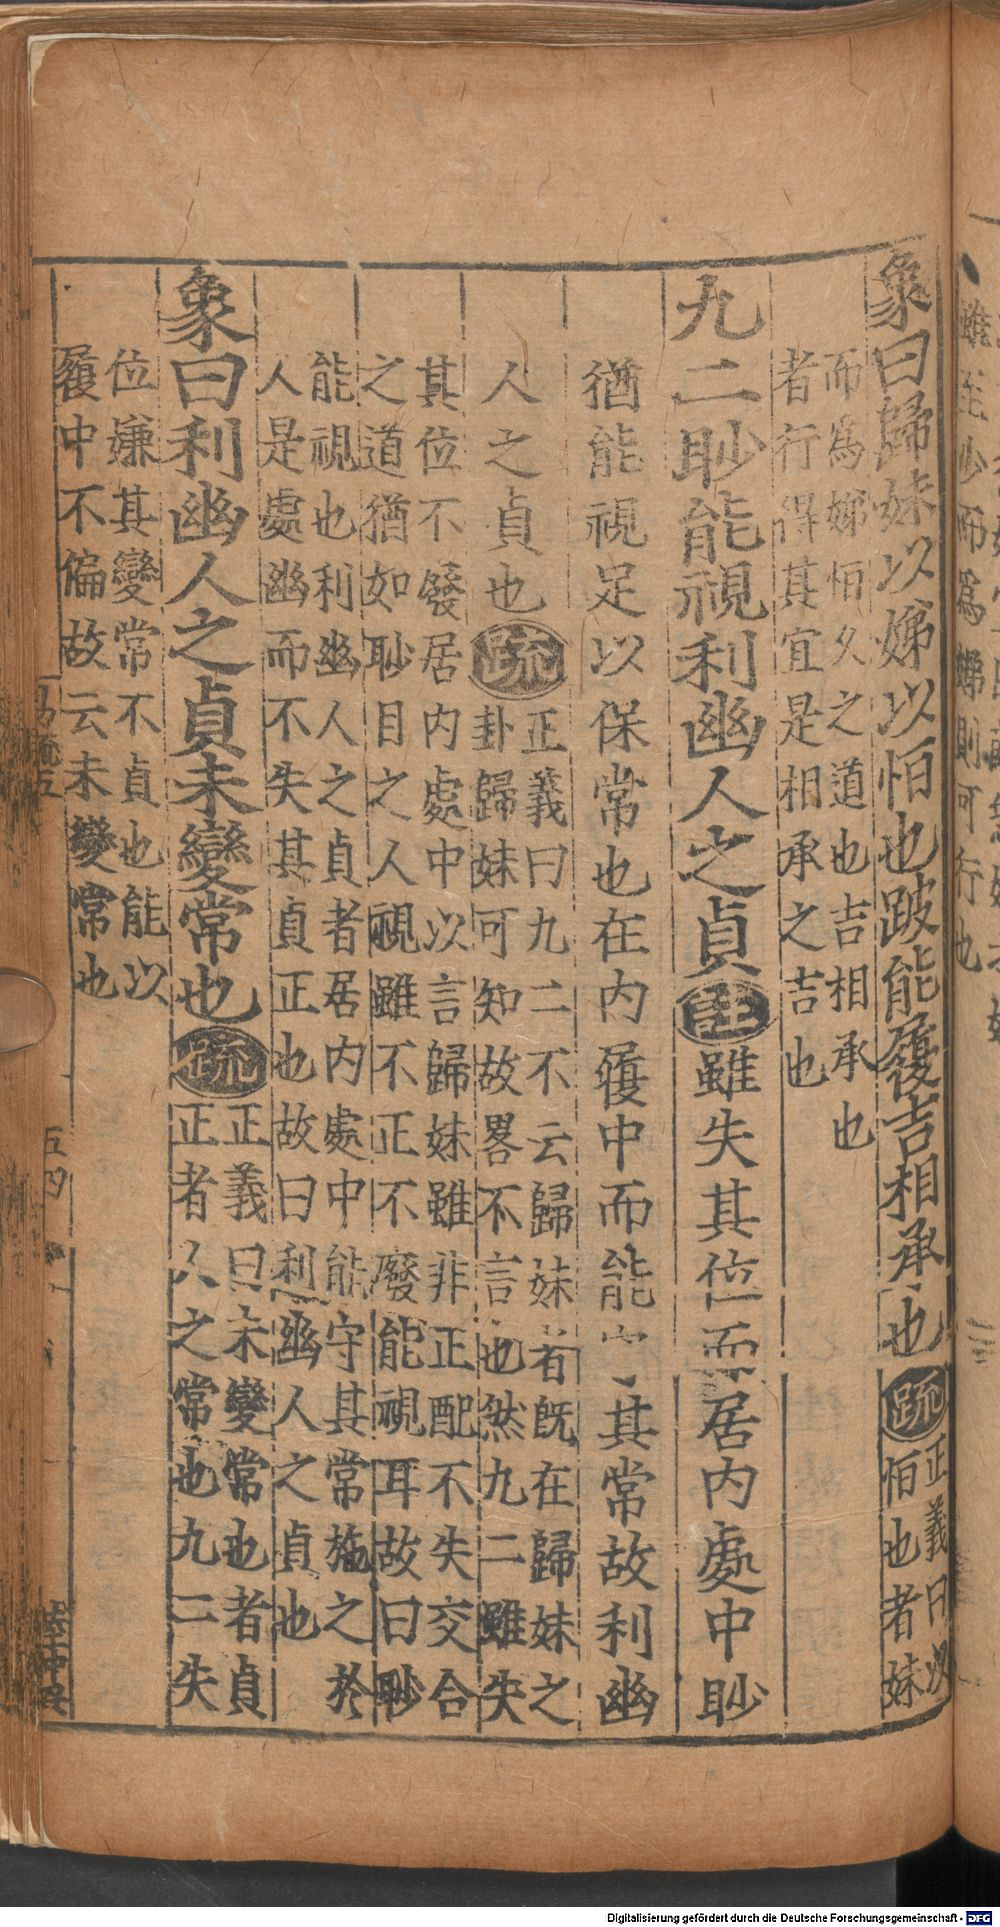 象曰歸妹以娣以恒也跛能履吉相承也疏正義曰以
恒也者妹
而為娣恒久之道也吉相承也
者行得其宜是相承之吉也
九二眇能視利幽人之貞註雖失其位而居內處中眇
猶能視足以保常也在內履中而能其常故利幽
人之貞也疏正義曰九二不云歸妹者既在歸妹之
卦歸妹可知故畧不言也然九二雖失
其位不廢居內處中以言歸妹雖非正配不失交合
之道猶如眇目之人視雖不正不廢能視耳故曰眇
能視也利幽人之貞者居內處中能守其常施之於
人是處幽而不失其貞正也故曰利幽人之貞也
象曰利幽人之貞未變常也疏正義曰未變常也者貞
正者人之常也九二失
位嫌其變常不貞也能以
履中不偏故云未變常也
雖至少而為娣則可行也
五四
Digitalisierung gefördert durch die Deutsche Forschungsgemeinschaft - DFG